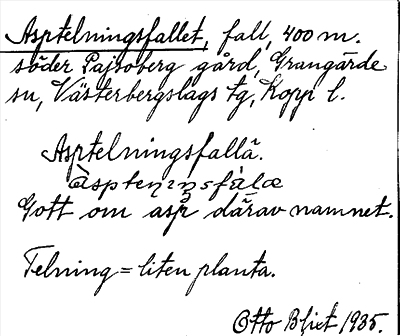 Asptelningsfallet, fall, 400 m.
söder Pajsoberg gård, Grangärde
sn, Västerbergslags tg, Kopp l.
Asptelningsfallä.
Gott om asp därav namnet.
Telning = liten planta.
Otto 1935.